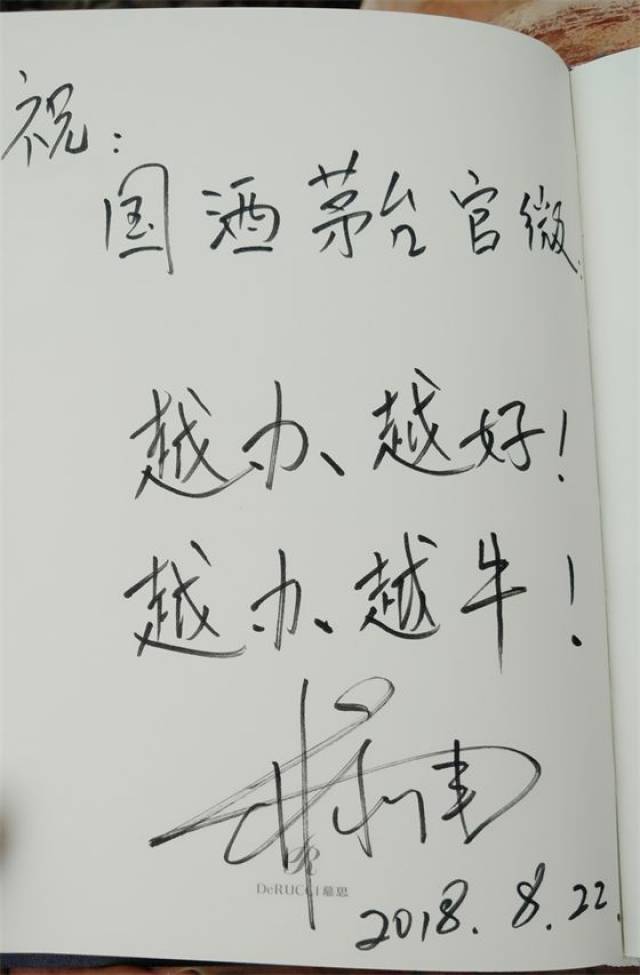 祝:
国酒茅台官微
越办越好!
越办越牛!
DeRUCCI慕思
2018.8.22